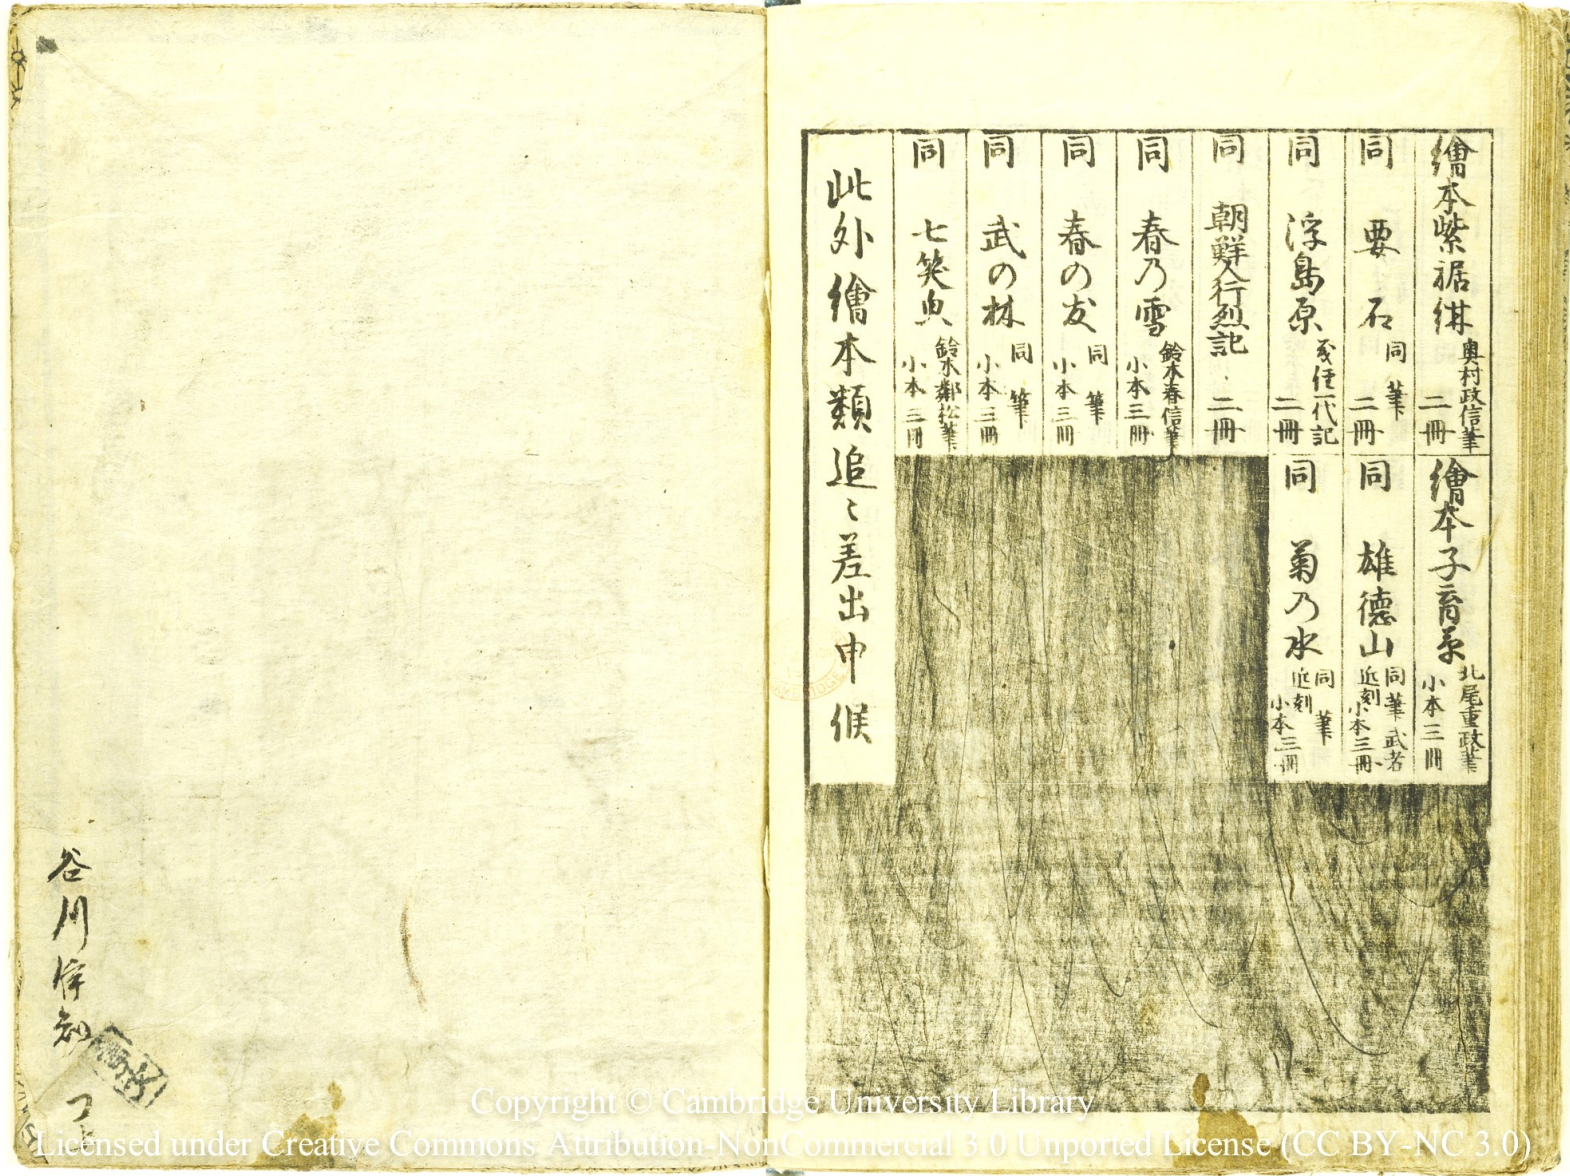 繪本紫裾綝 奥村政信筆 二冊
同 要石 同筆 二冊
同 浮島原 義経一代記 二冊
同 朝鮮人行烈記 二冊
同 春乃雪 鈴木春信筆 小本三冊
同 春の友 同筆 小本三冊
同 武の林 同筆 小本三冊
同 七笑 鈴木鄰松筆 小本三冊
繪本子育草 北尾重政筆 小本三冊
同 雄徳山 同筆武者 近刻 小本三冊
同 菊乃水 同筆 近刻 小本三冊
此外繪本類追〻差出申候
谷川
Copyright © Cambridge University Library
Licensed under Creative Commons Attribution-NonCommercial 3.0 Unported License (CC BY-NC 3.0)